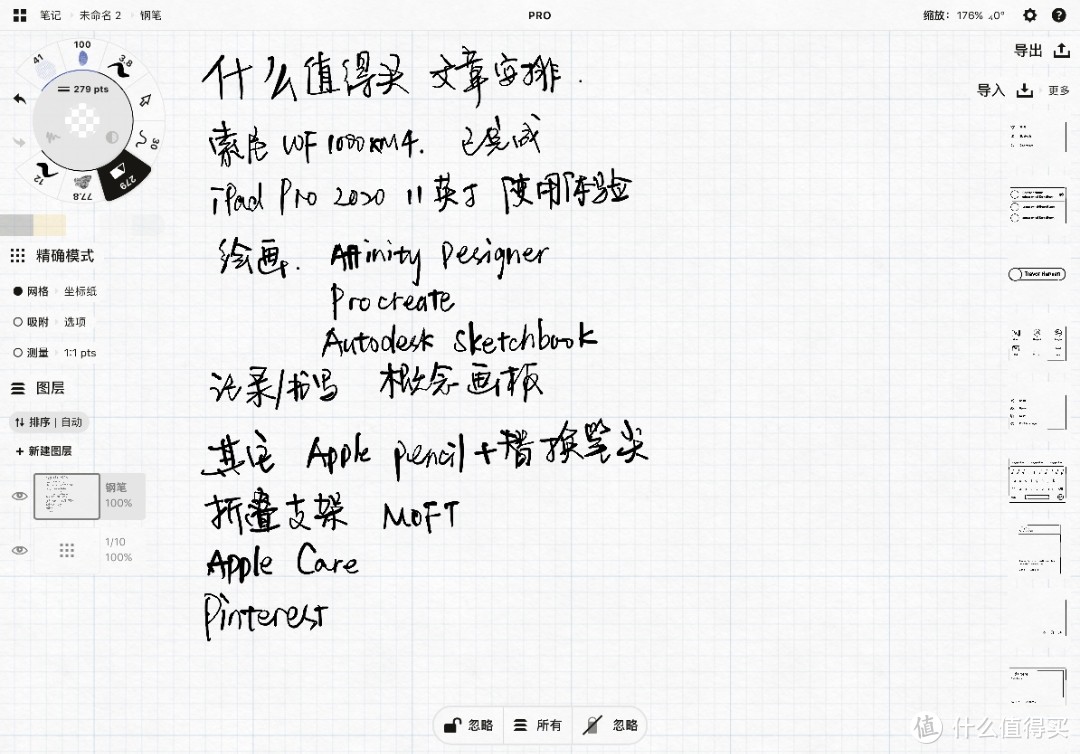 笔记 未命名 2 钢笔
PRO
缩放: 176% ⊿0°
导出
导入 更多
100
41
3.8
279 pts
30
279
77.8
12
精确模式
网格 坐标纸
吸附 选项
测量 1:1 pts
图层
排序 | 自动
+ 新建图层
钢笔
100%
1/10
100%
什么值得买 文章安排.
索尼 WF 1000XM4. 已完成
iPad Pro 2020 11英寸 使用体验
绘画. Affinity Designer
Procreate
Autodesk Sketchbook
记录/书写 概念画板
其它 Apple pencil+替换笔尖
折叠支架 MOFT
Apple Care
Pinterest
Trevor Hansen
忽略 所有 忽略
值 什么值得买